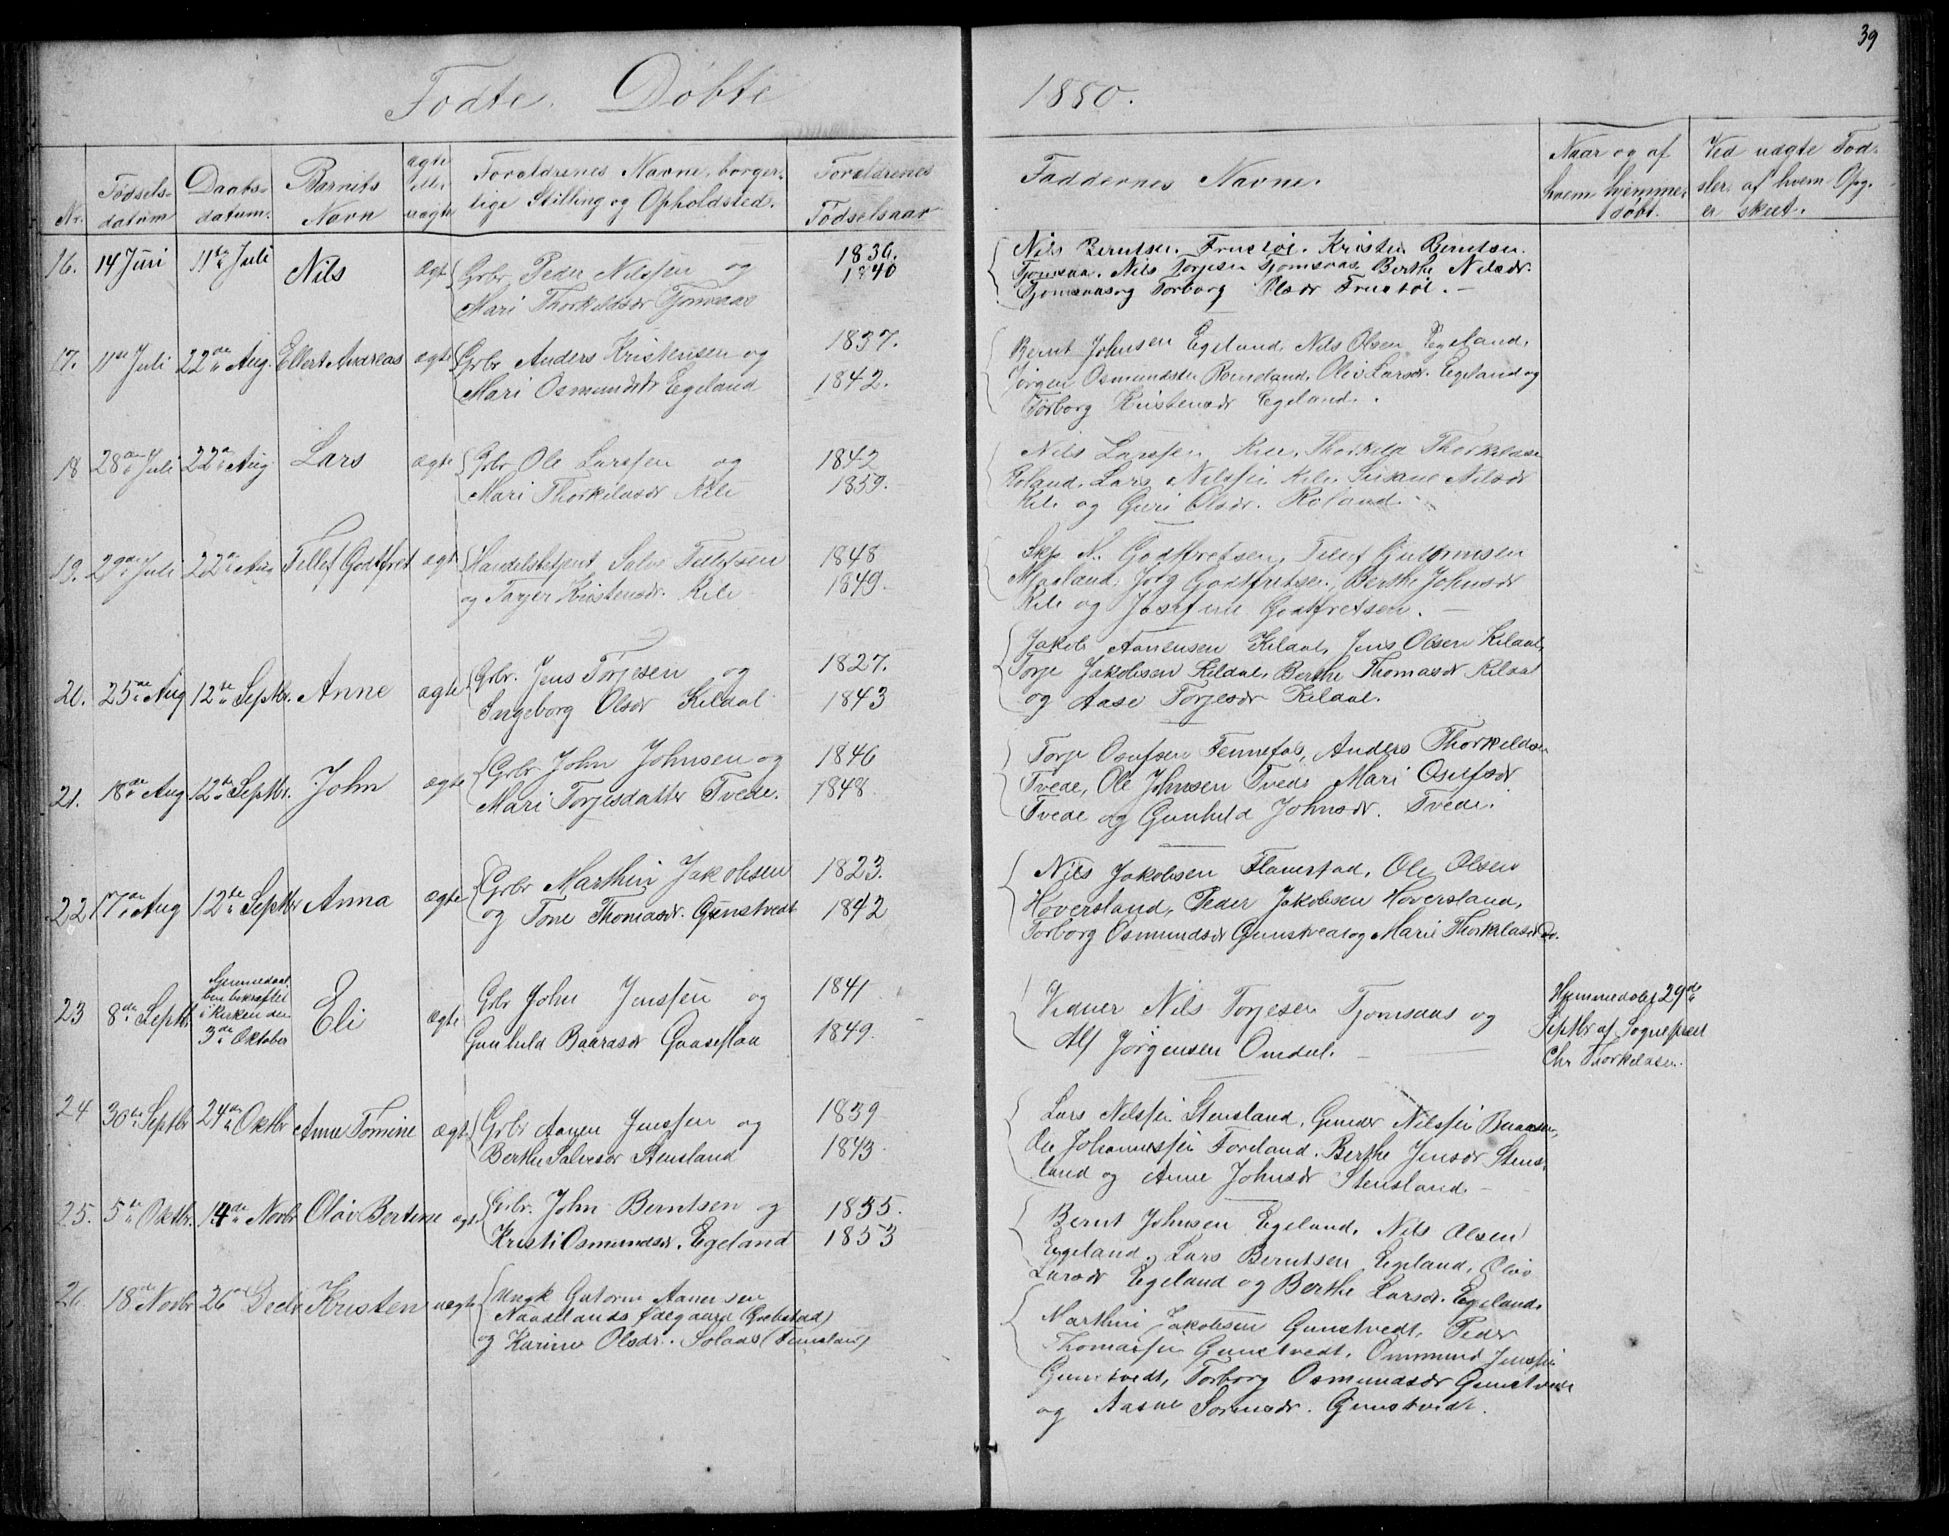 39
Fødte. Døbte 1880.
Nr. Fødsels-datum Daabs-datum. Barnets Navn ægte eller uægte Forældrenes Navne, borger-lige Stilling og Opholdsted. Forældrenes Fødselsaar Faddernes Navne. Naar og af hvem hjemme-døbt. Ved uægte Fød-sler, af hvem Opg. er skeet.
16. 14 Juni 11te Juli Nils ægte Grbr Peder Nilssen og 1836.
Mari Thorkildsdr Tjomsaas 1840
Nils Berntsen Frustøl. Kristen Berntsen
Tjomsaa. Nils Torjesen Tjomsaas Berthe Nilsdr.
Tjomsaas og Torborg Olsdr Frustøl. -
17. 11te Juli 22de Aug. Ellert Andreas ægte Grbr Anders Kristensen og 1837.
Mari Osmundsdr Egeland 1842.
Bernt Johnsen Egeland, Nils Olsen Egeland,
Jørgen Osmundsen Romeland, Olöv Larsdr. Egeland og
Torborg Kristensdr Egeland.
18 28de Juli 22de Aug Lars ægte Grbr Ole Larssen og 1842
Mari Thorkildsdr Kile 1859.
Nils Larssen Kile, Thorkild Thorkildsen
Roland, Lars Nilssen Kile, Nilsdr
Kile og Guri Olsdr. Roland.
19. 29de Juli 22de Aug Tellef Godtfret ægte Handelsbetjent Salve Tellefsen 1848
og Torjer Kristensdr. Kile 1849.
Skp. N. Godtfretsen, Tellef Gutormsen
Jorg Godtfretsen, Berthe Johnsdr
Kile og Josefine Godtfretsen. -
20. 25de Aug 12te Septbr. Anne ægte Grbr. Jens Torjesen og 1827.
Ingeborg Olsdr Kildal 1843
Jakob Aanensen Kildal, Jens Olsen Kildal,
Torje Jakobsen Kildal, Berthe Thomasdr Kildal
og Aase Torjesdr Kildal.
21. 18de Aug 12te Septbr. John ægte Grbr John Johnsen og 1846
Mari Torjesdatter Tvede. 1848
Torje Osufsen Fennefos, Anders Thorkildsen
Tvede, Ole Johnsen Tvede Mari Osufsdr
Tvede og Gunhild Johnsdr. Tvede.
22 17de Aug 12te Septbr Anna ægte Grbr Marthin Jakobsen 1823.
og Tone Thomasdr. Gunstvedt 1842
Nils Jakobsen Flanestad, Ole Olsen
Hoversland, Peder Jakobsen Hoversland,
Torborg Osmundsdr Gunstvedt og Marie Thorkildsdr Do.
23 8de Septbr Hjemmedaa-ben bekræftet i Kirken den 3de Oktober Eli ægte Grbr John Jenssen og 1841
Gunhild Baardsdr Gaaseflaa 1849.
Vidner Nils Torjesen Tjomsaas og
Alf Jørgensen Omdal. -
Hjemmedøbt 29de
Septbr af Sognepræst
Chr Thorkildsen.
24 30te Septbr 24de Oktbr Anne Tomine ægte Grbr Aanen Jenssen og 1839
Berthe Salvesdr Stensland 1843
Lars Nilssen Stensland, Gunder Nilssen
Ole Johannessen Fordand. Berthe Jensdr Stens-
land og Anne Johnsdr Stensland -
25. 5te Oktbr. 14de Novbr Oløv Bertine ægte Grbr. John Berntsen og 1855.
Kristi Osmundsdr. Egeland 1853
Bernt Johnsen Egeland, Nils Olsen
Egeland, Lars Berntsen Egeland, Oløv
Larsdr Egeland og Berthe Larsdr. Egeland
26. 18de Novbr 26de Decbr Kristen uægte Ungk Gutorm Aanensen
Naadelands Ødegaard
og Karine Olsdr. Solaas
Marthin Jakobsen Gunstvedt, Peder
Thomassen Gunstvedt, Ommund Jenssen
Gunstvedt, Torborg Osmundsdr Gunstvedt
og Aasne Sørensdr. Gunstvedt.